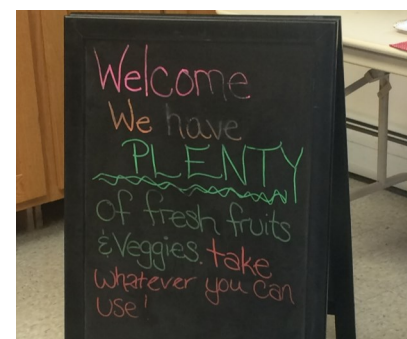 Welcome
We have
PLENTY
of fresh fruits
& Veggies. take
whatever you can
use!